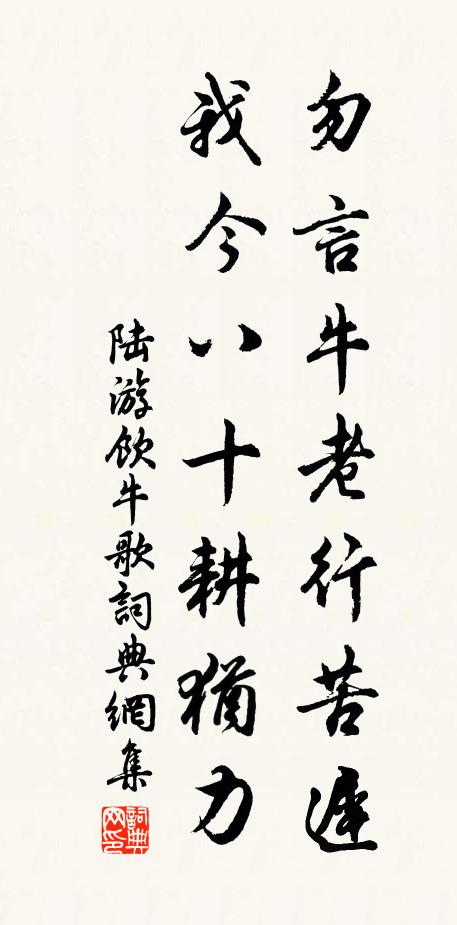 勿言牛老行苦遲
我今八十耕猶力
陆游飲牛歌詞典網集
詞典网印